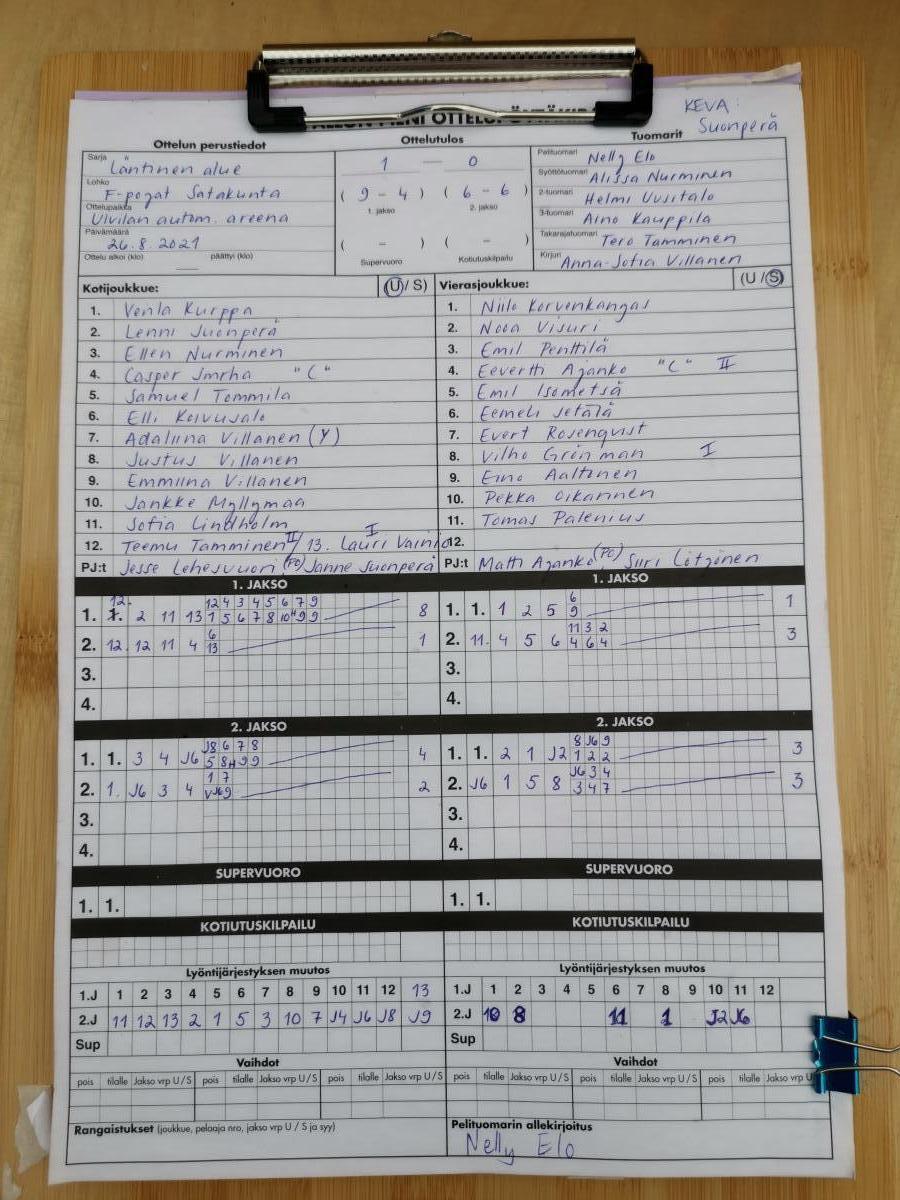 KEVA:
Suonperä
Ottelun perustiedot
Ottelutulos
Tuomarit
Sarja Läntinen alue
Lohko F-pojat Satakunta
Ottelupaikka Ulvilan autom. areena
Päivämäärä 26.8.2021
Ottelu alkoi (klo) päättyi (klo)
1 — 0
( 9 - 4 ) ( 6 - 6 )
1. jakso 2. jakso
( - ) ( - )
Supervuoro Kotiutuskilpailu
Pelituomari Nelly Elo
Syöttötuomari Alissa Nurminen
2-tuomari Helmi Uusitalo
3-tuomari Aino Kauppila
Takarajatuomari Tero Tamminen
Kirjuri Anna-Sofia Villanen
Kotijoukkue: (U / S)
1. Venla Kurppa
2. Lenni Suonperä
3. Ellen Nurminen
4. Casper Imrha "C"
5. Samuel Tommila
6. Elli Koivusalo
7. Adaliina Villanen (Y)
8. Justus Villanen
9. Emmiina Villanen
10. Jankke Myllymaa
11. Sofia Lindholm
12. Teemu Tamminen II / 13. Lauri Vainio I
PJ:t Jesse Lehesvuori (PO) Janne Suonperä
Vierasjoukkue: (U / S)
1. Niilo Korvenkangas
2. Nooa Visuri
3. Emil Penttilä
4. Eevertti Ajanko "C" II
5. Emil Isometsä
6. Eemeli Setälä
7. Evert Rosenqvist
8. Vilho Grönman I
9. Eino Aaltonen
10. Pekka Oikarinen
11. Tomas Palenius
12.
PJ:t Matti Ajanko (PO), Siiri Lötjönen
1. JAKSO
12. 12 4 3 4 5 6 7 9
1. 2 11 13 1 5 6 7 8 10 H 9 9 8
6
2. 12. 12 11 4 13 1
3.
4.
1. JAKSO
6
1. 1. 1 2 5 9 1
11 3 2
2. 11. 4 5 6 4 6 4 3
3.
4.
2. JAKSO
J8 6 7 8
1. 1. 3 4 J6 5 8 H 9 9 4
1 7
2. 1. J6 3 4 V J6 9 2
3.
4.
2. JAKSO
8 J6 9
1. 1. 2 1 J2 1 2 2 3
J6 3 4
2. J6 1 5 8 3 4 7 3
3.
4.
SUPERVUORO
1. 1.
SUPERVUORO
1. 1.
KOTIUTUSKILPAILU
KOTIUTUSKILPAILU
Lyöntijärjestyksen muutos
1.J 1 2 3 4 5 6 7 8 9 10 11 12 13
2.J 11 12 13 2 1 5 3 10 7 J4 J6 J8 J9
Sup
Lyöntijärjestyksen muutos
1.J 1 2 3 4 5 6 7 8 9 10 11 12
2.J 10 8 11 1 J2 J6
Sup
Vaihdot
pois tilalle Jakso vrp U / S pois tilalle Jakso vrp U / S pois tilalle Jakso vrp U / S
Vaihdot
pois tilalle Jakso vrp U / S pois tilalle Jakso vrp U / S pois tilalle Jakso vrp U
Rangaistukset (joukkue, pelaaja nro, jakso vrp U / S ja syy)
Pelituomarin allekirjoitus
Nelly Elo